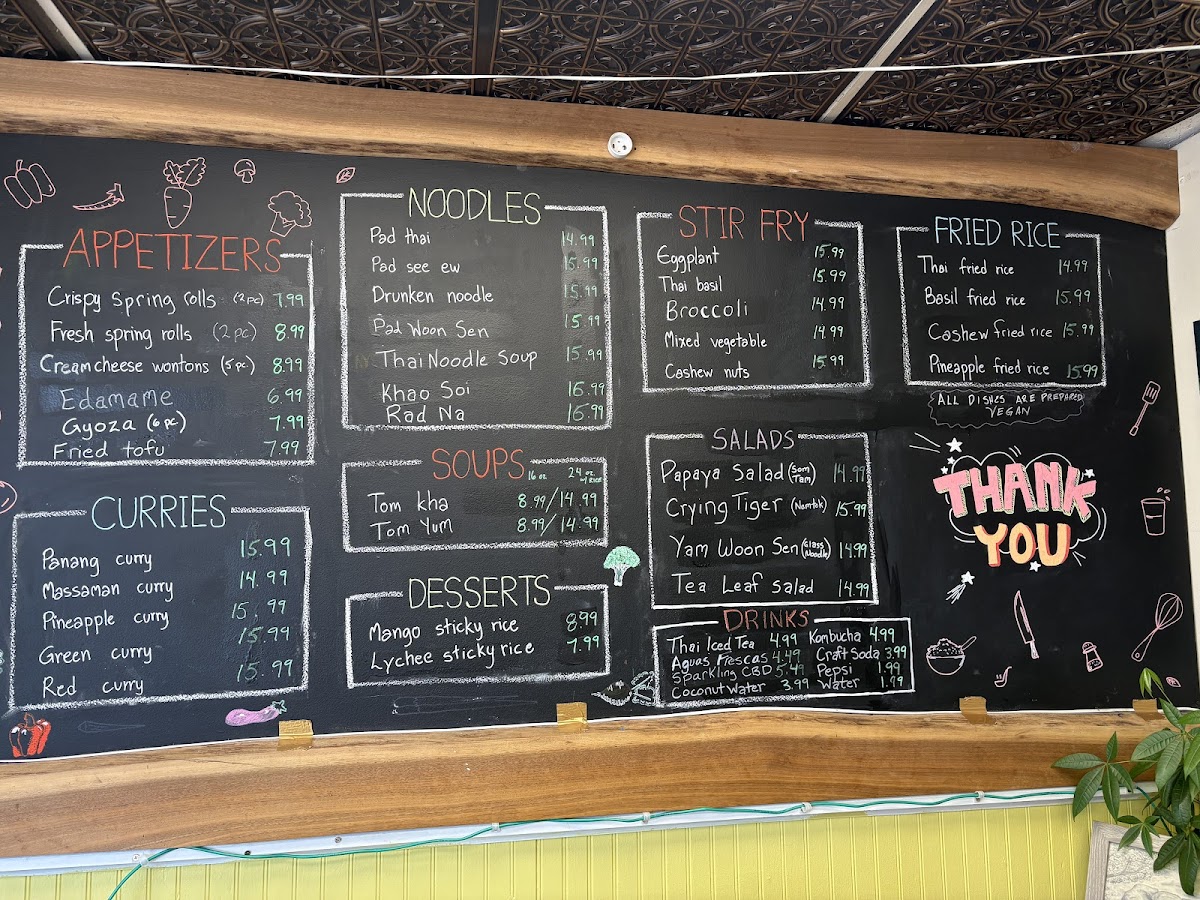 APPETIZERS
Crispy Spring rolls (2pc) 7.99
Fresh spring rolls (2 pc) 8.99
Creamcheese wontons (5pc) 8.99
Edamame 6.99
Gyoza (6 pc) 7.99
Fried tofu 7.99
CURRIES
Panang curry 15.99
Massaman curry 14.99
Pineapple curry 15.99
Green curry 15.99
Red curry 15.99
NOODLES
Pad thai 14.99
Pad see ew 15.99
Drunken noodle 15.99
Pad Woon Sen 15.99
Thai Noodle Soup 15.99
Khao Soi 16.99
Rad Na 16.99
SOUPS 16 oz 24 oz
Tom kha 8.99/14.99
Tom Yum 8.99/14.99
DESSERTS
Mango sticky rice 8.99
Lychee sticky rice 7.99
STIR FRY
Eggplant 15.99
Thai basil 15.99
Broccoli 14.99
Mixed vegetable 14.99
Cashew nuts 15.99
SALADS
Papaya Salad (Som Tam) 14.99
Crying Tiger (Namtok) 15.99
Yam Woon Sen (Glass Noodle) 14.99
Tea Leaf Salad 14.99
DRINKS
Thai Iced Tea 4.99 Kombucha 4.99
Aguas Frescas 4.49 Craft Soda 3.99
Sparkling CBD 5.49 Pepsi 1.99
Coconut water 3.99 Water 1.99
FRIED RICE
Thai fried rice 14.99
Basil fried rice 15.99
Cashew fried rice 15.99
Pineapple fried rice 15.99
ALL DISHES ARE PREPARED
VEGAN
THANK
YOU